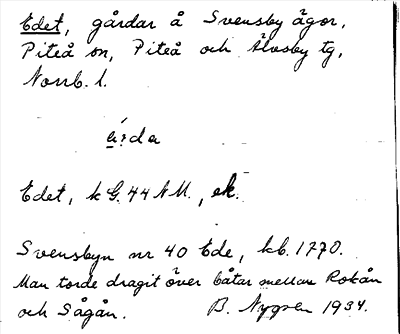 Edet, gårdar å Svensby ägor,
Piteå sn, Piteå och Älvsby tg,
Norrb. l.
Edet, k G. 44 NM., ek.
Svensbyn nr 40 Ede, kb. 1770.
Man torde dragit över båtar mellan Rokån
och Sågån. B. Nygren 1934.